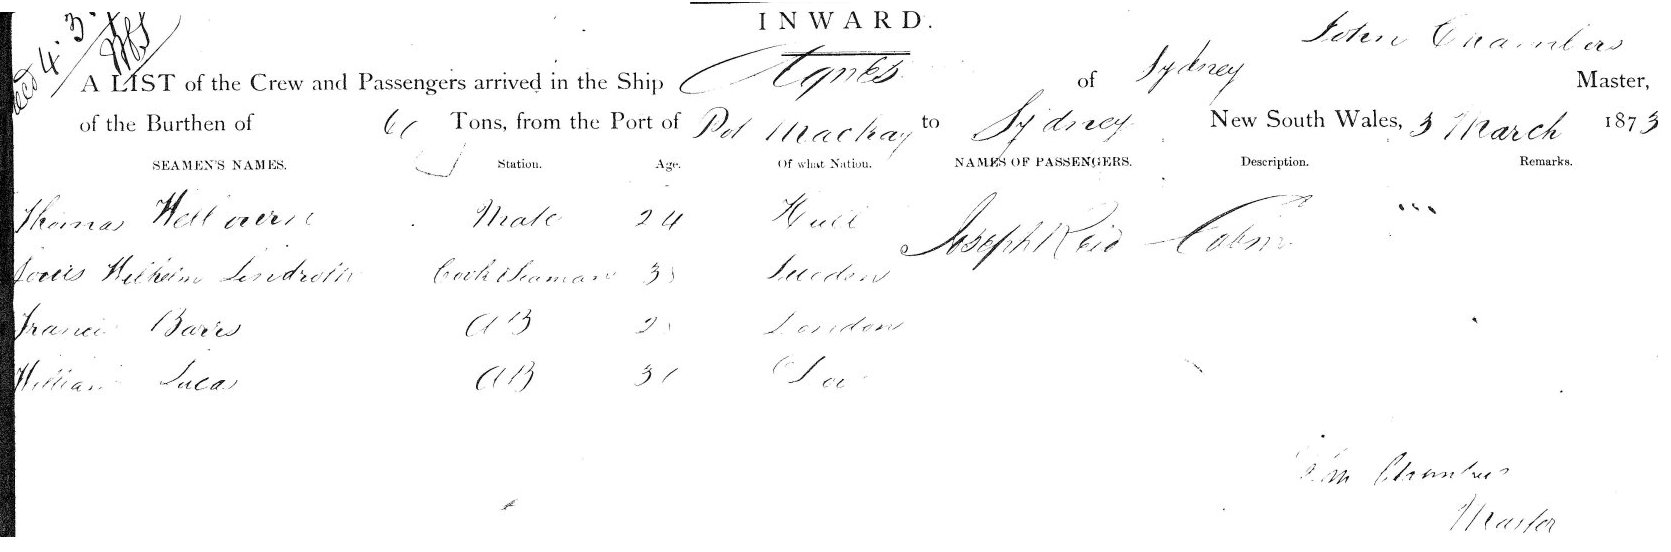 INWARD.
John Chambers
A LIST of the Crew and Passengers arrived in the Ship Agnes of Sydney Master,
of the Burthen of Tons, from the Port of Mackay to Sydney New South Wales, 3 March 1873
SEAMEN'S NAMES. Station. Age. Of what Nation. NAMES OF PASSENGERS. Description. Remarks.
Thomas Mate 24 Hull Joseph Reid Cabin
Louis Wilhelm Lindroth Cook & Seaman Sweden
Francis Barrs AB London
William Lucas AB
Chambers
Master